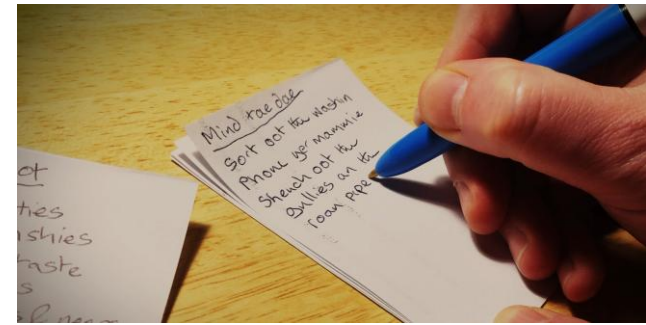 Mind tae dae
Sort oot the washin
Phone yer mammie
Sheuch oot the
gullies an the
roan pipe
ot
ties
shies
taste
s